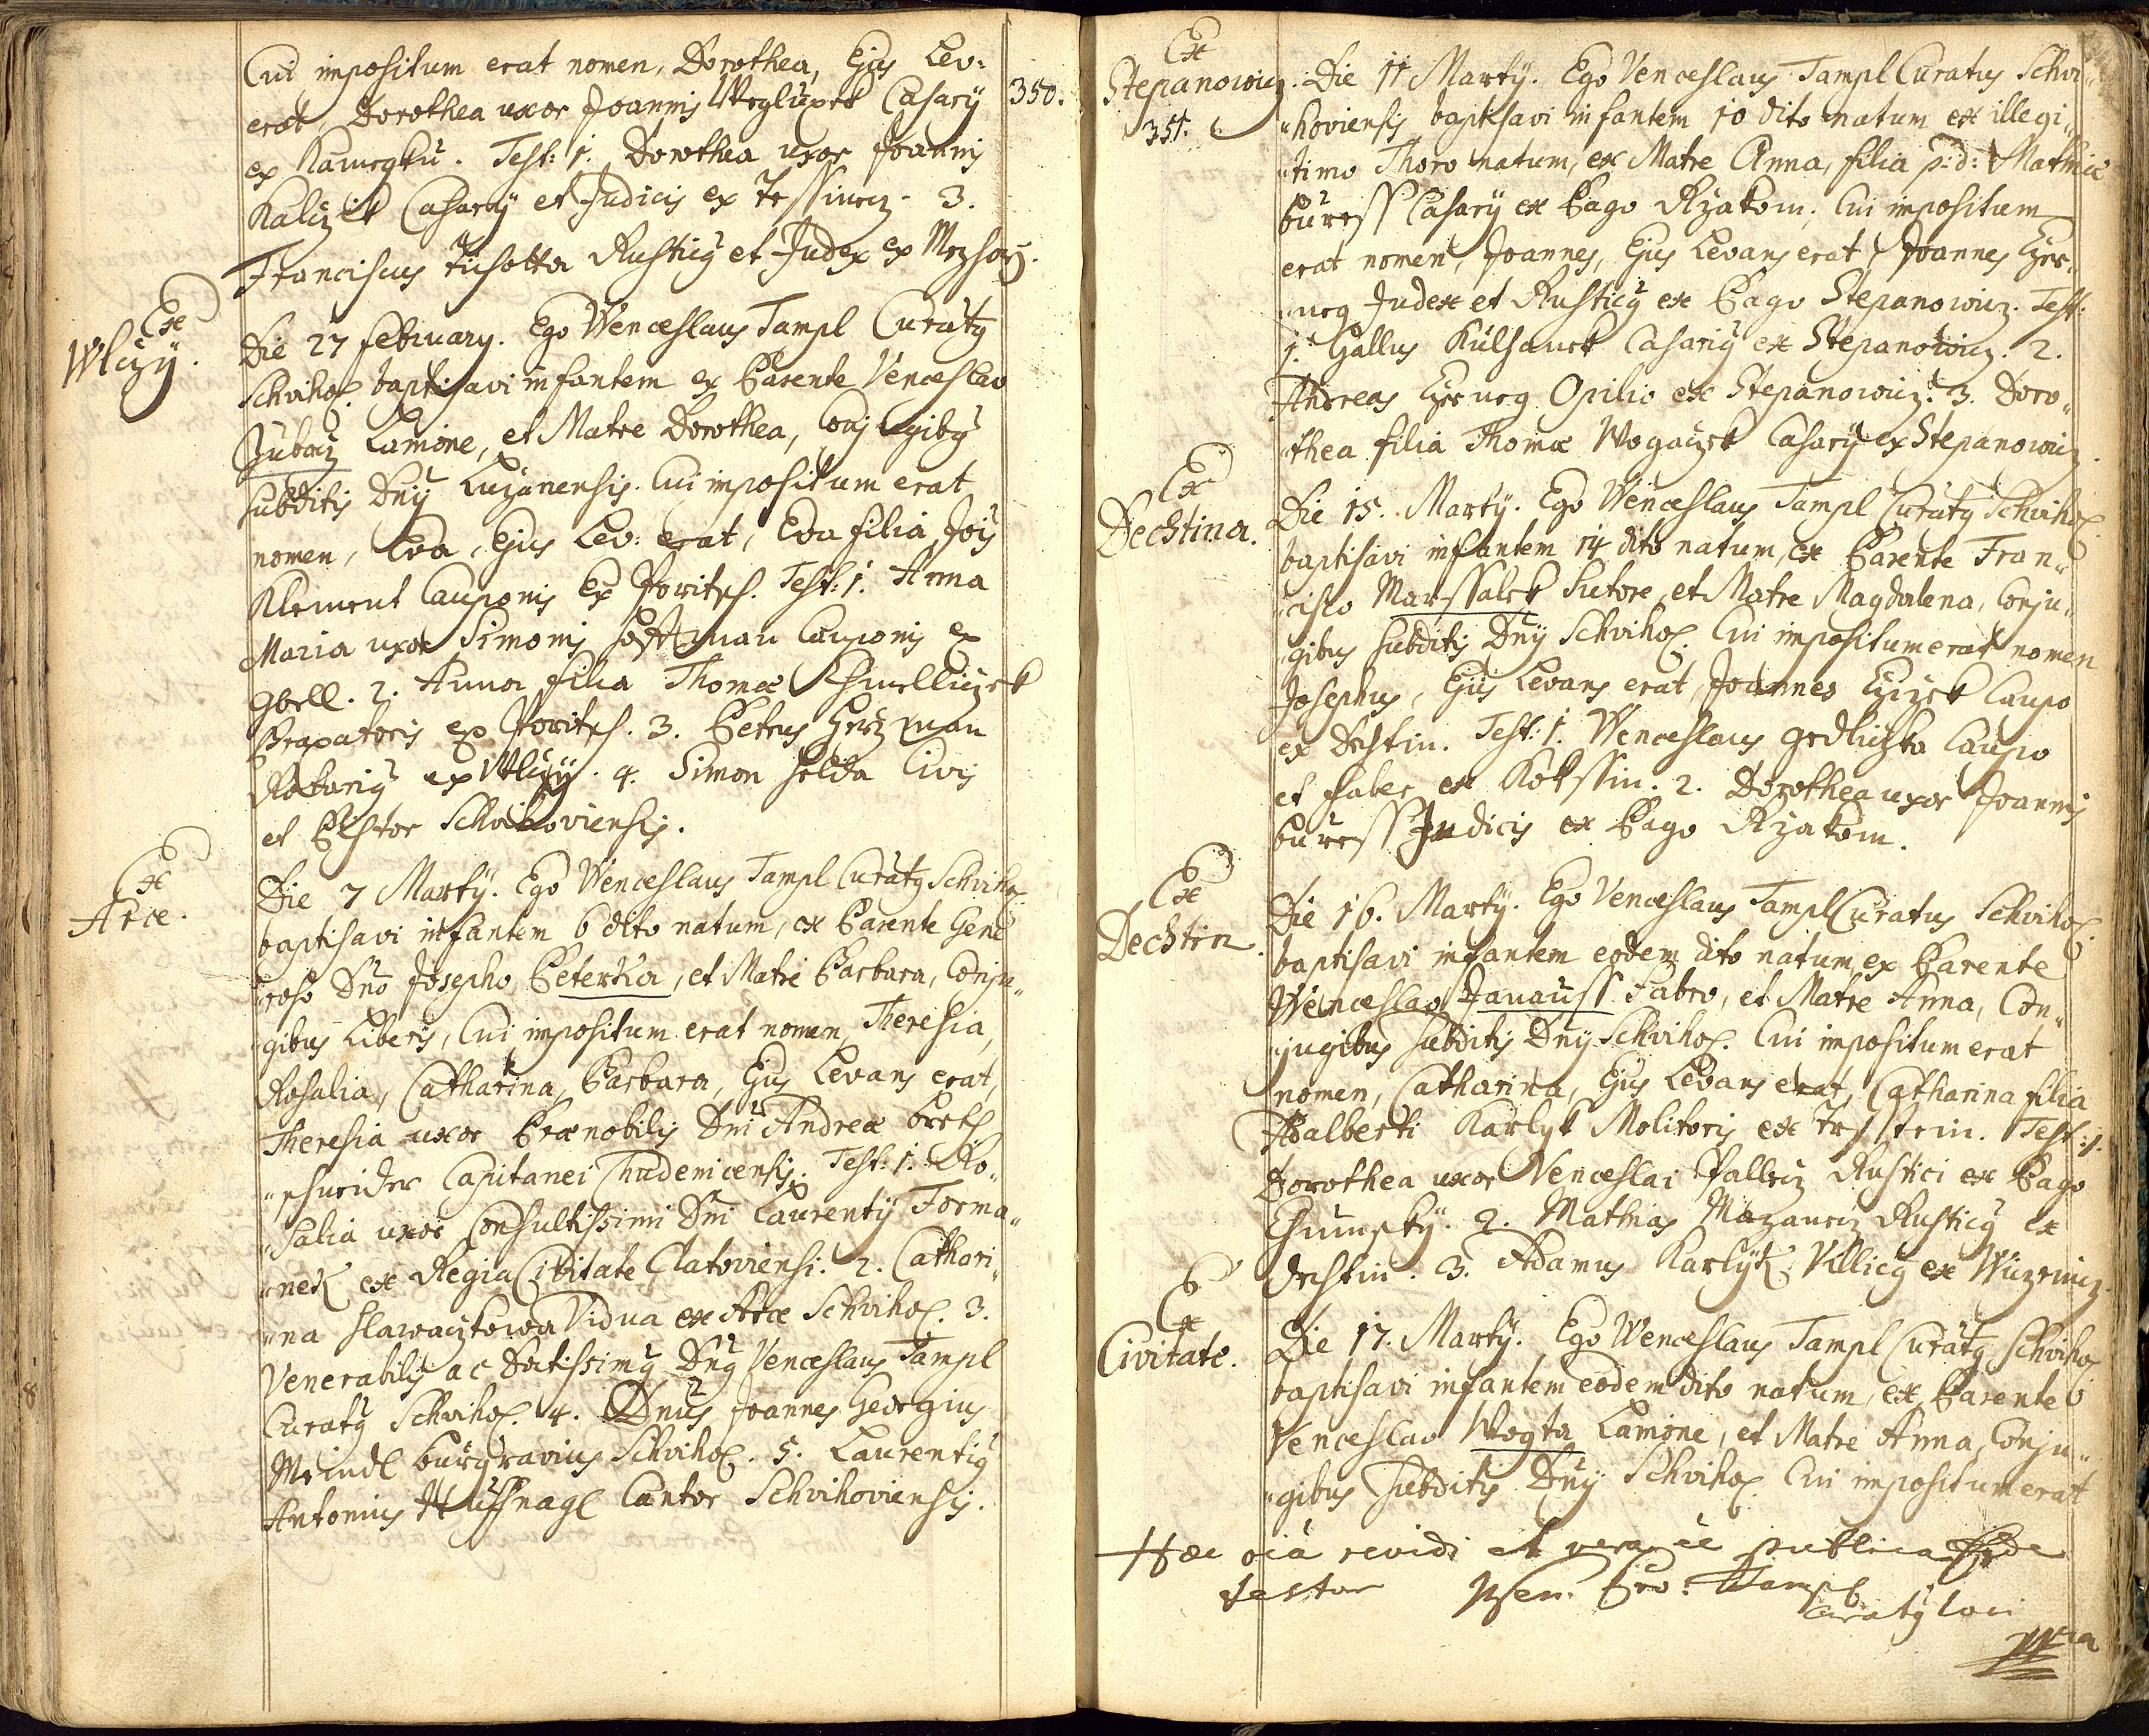 350.
Cui impositum erat nomen, Dorothea, Ejus Lev:
erat, Dorothea uxor Joannis Casarij
ex Kamegku. Test: 1. Dorothea uxor Joannis
Kalizik Casarij et Judicis ex 3.
Franciscus Rusticus et Judex ex
Ex
Wlczy.
Die 27 February. Ego Wenceslaus Tampl Curatus
Schvihov. baptisavi infantem ex Parente Venceslao
Lamone, et Matre Dorothea, Conjugibus
subditis Dnij Luzanensis. Cui impositum erat
nomen, Eva, Ejus Lev: erat, Eva filia Jois
Klement Cauponis ex Poritsch. Test: 1. Anna
Maria uxor Simonis Cauponis ex
2. Anna filia Thomæ
Braxatoris ex Poritsch. 3. Petrus
ex Wlczy. 4. Simon Civis
et Schvihoviensis.
Ex
Arce.
Die 7 Martij. Ego Wenceslaus Tampl Curatus Schvihov.
baptisavi infantem 6 dito natum, ex Parente Gene
"roso Dno Josepho Peterka, et Matre Barbara, Conju"
"gibus Liberis, Cui impositum erat nomen Theresia,
Rosalia, Catharina, Barbara, Ejus Levans erat,
Theresia uxor Prænobilis Dni Andreæ
Capitanei Chudenicensis. Test: 1. Ro"
"salia uxor Consultissimi Dni Laurentij Forma"
"nek ex Regia Civitate Clatoviensi. 2. Cathari"
"na Slawaczkowa Vidua ex Arce Schvihov. 3.
Venerabilis ac Doctissimus Dnus Venceslaus Tampl
Curatus Schvihov. 4. Dnus Joannes Georgius
Meindl Burgravius Schvihov. 5. Laurentius
Antonius Huffnagl Cantor Schvihoviensis.
Ex
Stepanowicz.
351.
Die 11 Martij. Ego Venceslaus Tampl Curatus Schvi"
"hoviensis baptisavi infantem 10 dito natum ex illegi"
"timo Thoro natum, ex Matre Anna, filia p: d: Mathiæ
Buress Casarij ex Pago Rzakom. Cui impositum
erat nomen, Joannes, Ejus Levans erat, Joannes
Judex et Rusticus ex Pago Stepanowicz. Test:
1. Gallus Kulhanek Casarius ex Stepanowicz. 2.
Andreas Opilio ex Stepanowicz. 3. Doro"
"thea filia Thomæ Wogaczek Casarij ex Stepanowicz.
Ex
Dechtina.
Die 15. Martij. Ego Wenceslaus Tampl Curatus Schvihov.
baptisavi infantem 14 dito natum, ex Parente Fran"
"cisco Marssalek Sutore, et Matre Magdalena, Conju"
"gibus subditis Dnij Schvihov. Cui impositum erat nomen
Josephus, Ejus Levans erat, Joannes Caupo
ex Dechtin. Test: 1. Wenceslaus Caupo
et Faber ex Kokssin. 2. Dorothea uxor Joannis
Buress Judicis ex Pago Rzakom.
Ex
Dechtin.
Die 16. Martij. Ego Venceslaus Tampl Curatus Schvihov.
baptisavi infantem eodem dito natum ex Parente
Wenceslao Janauss Fabro, et Matre Anna, Con"
"jugibus subditis Dnij Schvihov. Cui impositum erat
nomen, Catharina, Ejus Levans erat, Catharina filia
Adalberti Karlyk Molitoris ex Test: 1.
Dorothea uxor Venceslai Rustici ex Pago
2. Mathias Mazanecz Rusticus ex
Dechtin. 3. Adamus Karlyk Villicus ex
Ex
Civitate.
Die 17. Martij. Ego Wenceslaus Tampl Curatus Schvihov
baptisavi infantem eodem dito natum, ex Parente
Venceslao Wogta Lamone, et Matre Anna, Conju"
"gibus subditis Dnij Schvihov. Cui impositum erat
Hæc oia revidi et vera ee publica fide
testor Wen. Tampl
Curatus loci